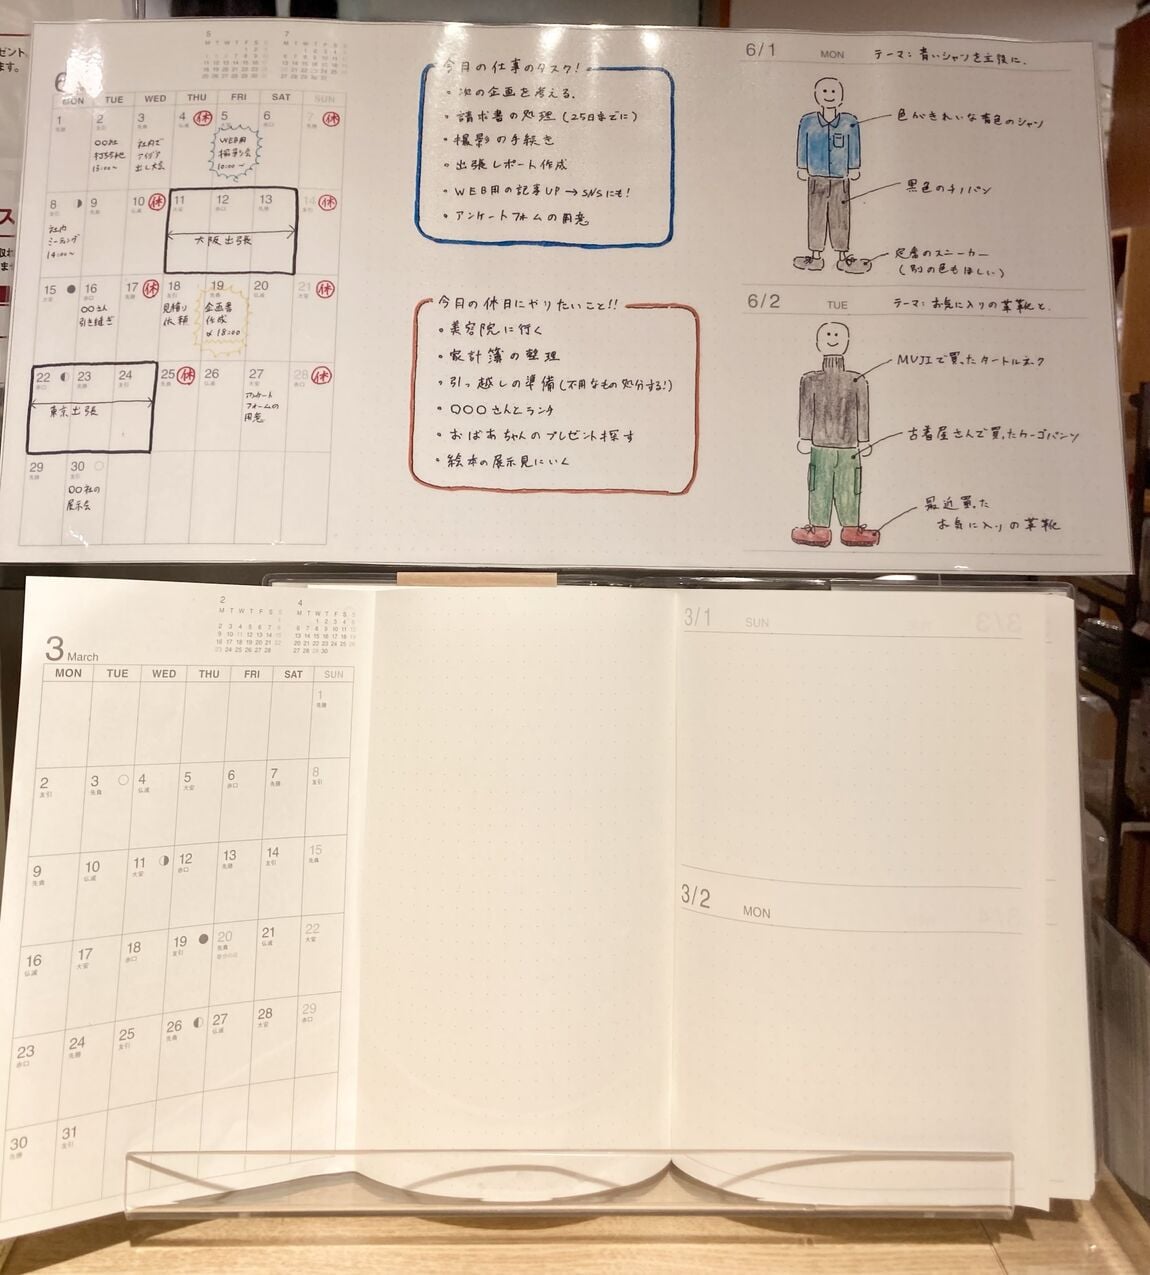 5
7
6
MON TUE WED THU FRI SAT SUN
1 先勝 2 友引 3 先負 4 仏滅 休 5 大安 6 赤口 7 先勝 休
〇〇社
打ち合わせ
13:00〜
社内で
アイデア
出し大会
WEB用
撮影会
10:00〜
8 友引 9 先負 10 仏滅 休 11 大安 12 赤口 13 先勝 14 友引 休
社内
ミーティング
14:00〜
大阪出張
15 大安 16 赤口 17 先勝 休 18 友引 19 先負 20 仏滅 21 大安 休
〇〇さん
引き継ぎ
見積り
依頼
企画書
作成
〆18:00
22 赤口 23 先勝 24 友引 25 先負 休 26 仏滅 27 大安 28 赤口 休
東京出張
アンケート
フォームの
用意
29 先勝 30 友引
〇〇社の
展示会
今月の仕事のタスク!
・次の企画を考える、
・請求書の処理(25日までに)
・撮影の手続き
・出張レポート作成
・WEB用の記事UP→SNSにも!
・アンケートフォームの用意
今月の休日にやりたいこと!!
・美容院に行く
・家計簿の整理
・引っ越しの準備(不用なもの処分する!)
・〇〇〇さんとランチ
・おばあちゃんのプレゼント探す
・絵本の展示見にいく
6/1 MON テーマ:青いシャツを主役に、
色がきれいな青色のシャツ
黒色のチノパン
定番のスニーカー
(別の色もほしい)
6/2 TUE テーマ:お気に入りの革靴と、
MUJIで買ったタートルネック
古着屋さんで買ったカーゴパンツ
最近買った
お気に入りの革靴
2
M T W T F S S
1
2 3 4 5 6 7 8
9 10 11 12 13 14 15
16 17 18 19 20 21 22
23 24 25 26 27 28
4
M T W T F S S
1 2 3 4 5
6 7 8 9 10 11 12
13 14 15 16 17 18 19
20 21 22 23 24 25 26
27 28 29 30
3 March
MON TUE WED THU FRI SAT SUN
1 先勝
2 友引 3 先負 4 仏滅 5 大安 6 赤口 7 先勝 8 友引
9 先負 10 仏滅 11 大安 12 赤口 13 先勝 14 友引 15 先負
16 仏滅 17 大安 18 赤口 19 友引 20 先負 21 仏滅 22 大安
春分の日
23 赤口 24 先勝 25 友引 26 先負 27 仏滅 28 大安 29 赤口
30 先勝 31 友引
3/1 SUN
3/2 MON